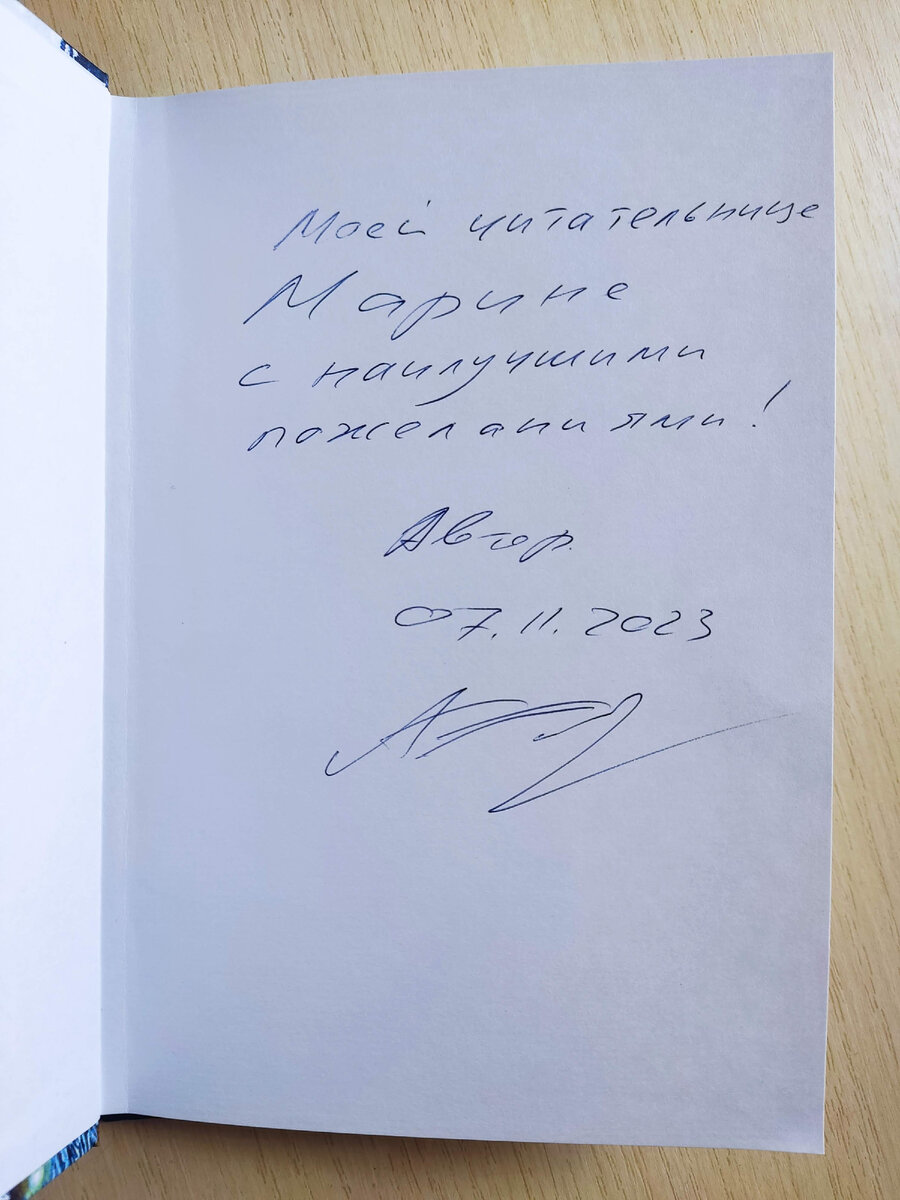 Моей читательнице
Марине
с наилучшими
пожеланиями!
Автор
07.11.2023